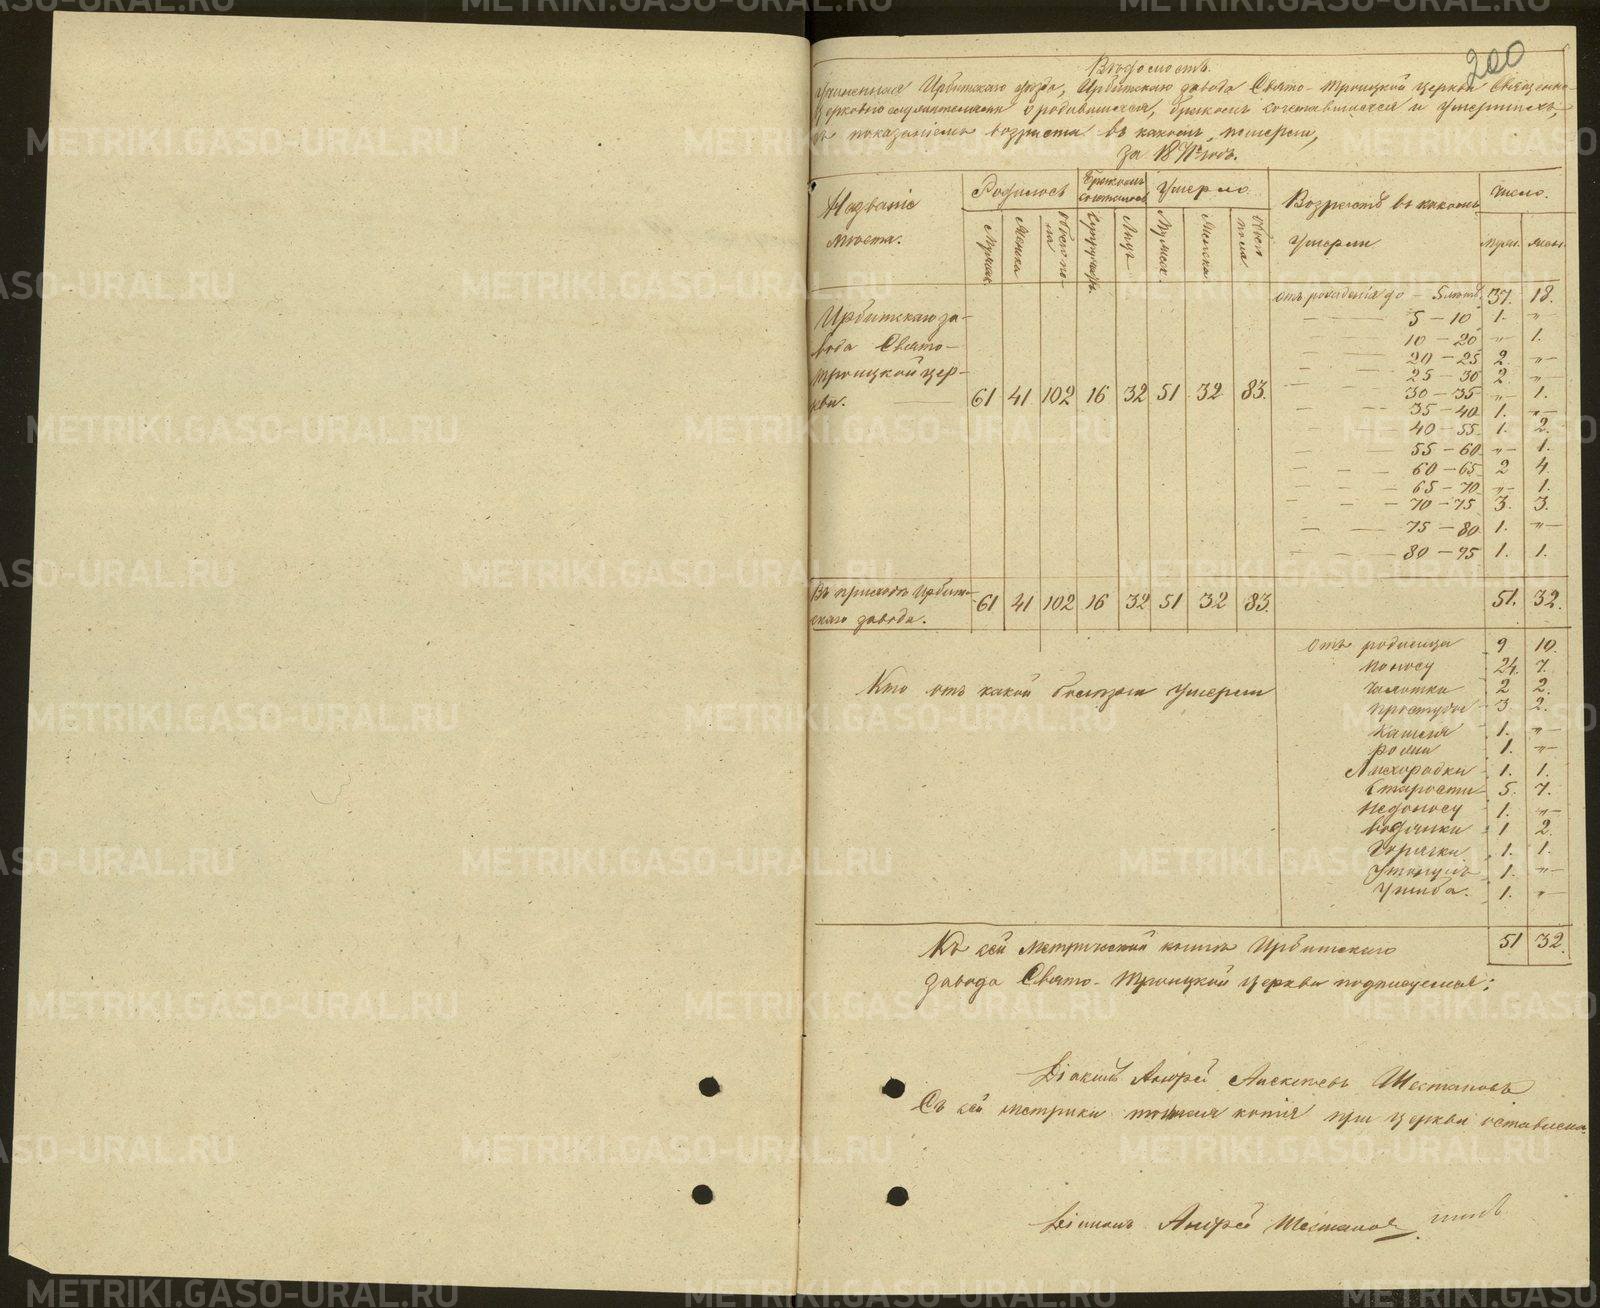 200
Вѣдомость
учиненная Ирбитскаго уѣзда, Ирбитскаго завода Свято-Троицкой церкви священно-
церковнослужителями о родившихся, бракомъ сочетавшихся и умершихъ,
съ показаніемъ возраста въ какомъ померли,
за 18 годъ.
Названіе мѣста.
Родилось
Бракомъ сочеталось
Умерло
Возрастъ въ какомъ умерли
Число.
Мужск.
Женска
Обоего по-
ла
Супружс.
Лицъ
Мужск.
Женска
Обоего
пола.
муж.
жен.
отъ рожденія до — 5 лѣтъ 37. 18.
5 — 10 1. „
10 — 20 „ 1.
20 — 25 2. „
25 — 30 2. „
30 — 35 „ 1.
35 — 40 1. „
40 — 55 1. 2.
55 — 60 „ 1.
60 — 65 2 4.
65 — 70 „ 1.
70 — 75 3. 3.
75 — 80 1. „
80 — 95 1. 1.
Ирбитскаго за-
вода Свято-
Троицкой цер-
кви. 61 41 102 16 32 51 32 83.
Въ приходѣ Ирбит-
скаго завода. 61 41 102 16 32 51 32 83. 51. 32.
Кто отъ какой болѣзни умерли
Отъ родимца 9 10.
поносу 24. 7.
чахотки 2 2.
простуды 3 2.
кашля 1. „
1. „
Лихорадки 1. 1.
Старости 5. 7.
недоносу 1. „
водянки 1 2.
Горячки 1. 1.
Утонулъ 1. „
Ушиба. 1. „
51 32.
Къ сей метрической книгѣ Ирбитскаго
завода Свято-Троицкой церкви подписуемся:
Діаконъ Андрей Алексѣевъ Шестаковъ
Съ сей метрики точная копія при церкви оставлена
Діаконъ Андрей Шестаковъ
METRIKI.GASO-URAL.RU